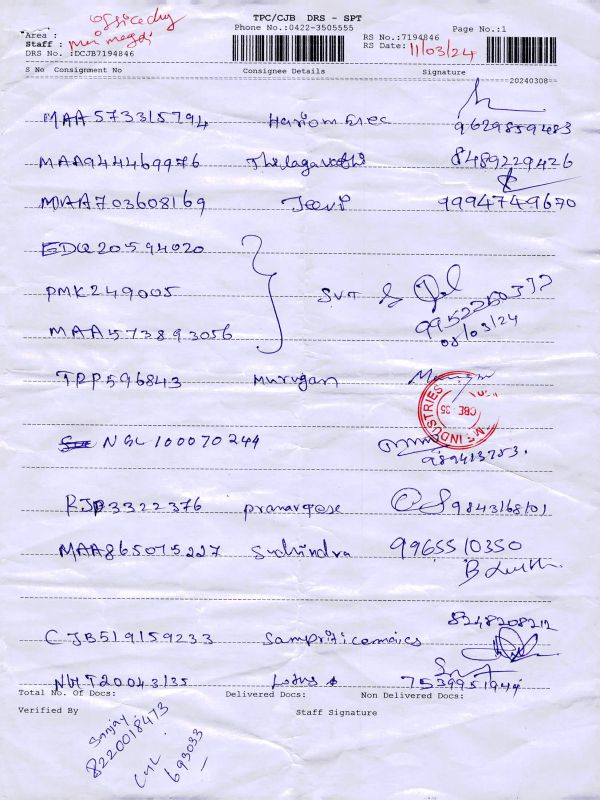 TPC/CJB DRS - SPT
Phone No.:0422-3505555
Page No.:1
Area :
RS No.:7194846
Staff :
RS Date: 11/03/24
DRS No. :DCJB7194846
S No Consignment No Consignee Details Signature
20240308
MAA573315794
9629859483
MAA944469976 Thelagavathi 8489229426
MAA703608169 Jeevi 9994749670
EDQ20594020
PMK249005 SVT &
MAA573893056 9952250377
08/03/24
TRP596843 Murugan
INDUSTRIES
CBE 35
NGL100070244
RJP3322376 9843168101
MAA865075227 Sudhindra 9965510350
8248208212
CJB519159233
NHT20043135 Lotus 7539951944
Total No. Of Docs: Delivered Docs: Non Delivered Docs:
Verified By Staff Signature
Sanjay
8220018473
693033